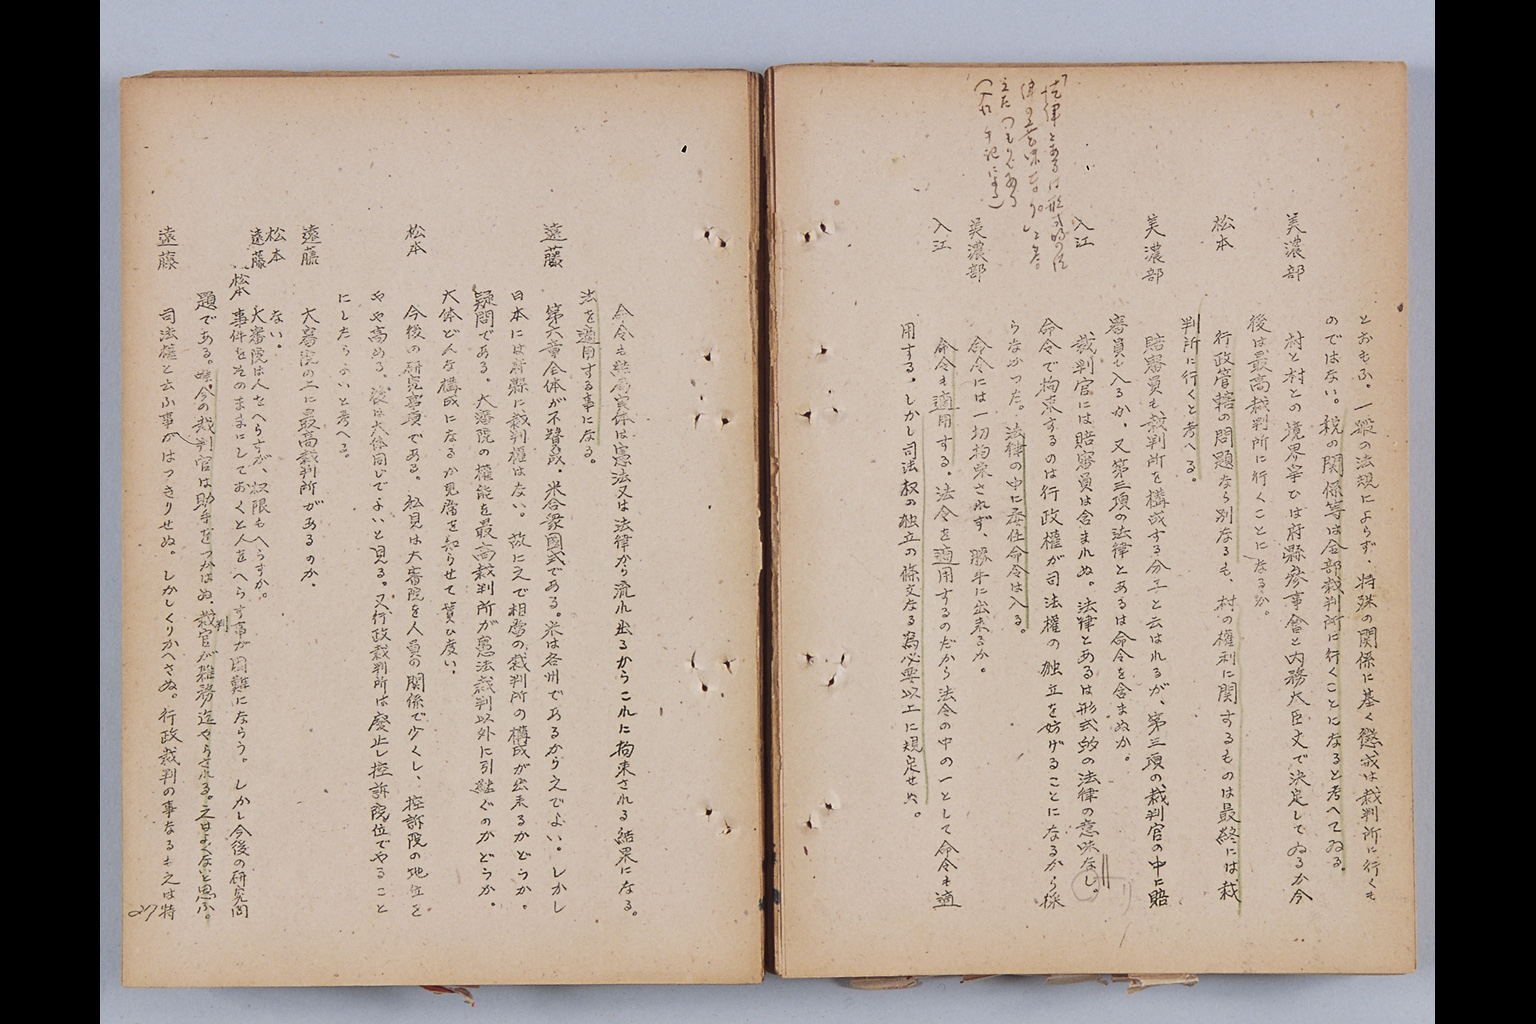 とおもふ。一般の法規によらず、特殊の関係に基く懲戒は裁判所に行くも
のではない。税の関係等は全部裁判所に行くことになると考へてゐる。
美濃部 村と村との境界爭ひは府縣参事會と内務大臣丈で決定してゐるか今
後は最高裁判所に行くことになるか。
松本 行政管轄の問題なら別なるも、村の權利に関するものは最終には裁
判所に行くと考へる。
美濃部 陪審員も裁判所を構成する分子と云はれるが、第三項の裁判官の中に陪
審員も入るか、又第三項の法律とあるは命令を含まぬか。
入江 裁判官には陪審員は含まれぬ。法律とあるは形式的の法律の意味なし。
命令で拘束するのは行政權が司法權の独立を妨げることになるから採
らなかつた。法律の中に委任命令は入る。
美濃部 命令には一切拘束されず、勝手に出来るか。
入江 命令も適用する。法令を適用するのだから法令の中の一として命令も適
用する。しかし司法权の独立の條文なる為必要以上に規定せぬ。
「法律とあるは形式的の法
律の意味なり。」と答
えたつもりである
(入江手記による)
命令も結局実体は憲法又は法律から流れ出るからこれに拘束される結果になる。
法を適用する事になる。
遠藤 第六章全体が不賛成。米合衆國式である。米は各州であるから之でよい。しかし
日本には府縣に裁判權はない。故に之で相當の裁判所の構成が出来るかどうか。
疑問である。大審院の權能を最高裁判所が憲法裁判以外に引継ぐのかどうか。
大体どんな構成になるか見當を知らせて貰ひ度い。
松本 今後の研究事項である。私見は大審院を人員の関係で少くし、控訴院の地位を
やや高める。後は大体同じでよいと見る。又行政裁判所は廢止し控訴院位でやること
にしたらよいと考へる。
遠藤 大審院の上に最高裁判所があるのか。
松本 ない。
遠藤 大審院は人をへらすが、权限もへらすか。
松本 事件をそのままにしておくと人をへらす事が困難にならう。しかし今後の研究問
題である。唯、今の裁判官は助手をつかはぬ、裁判官が雑務迄やらされる。之はよくないと思ふ。
遠藤 司法權と云ふ事がはつきりせぬ。しかしくりかへさぬ。行政裁判の事なるも之は特
27